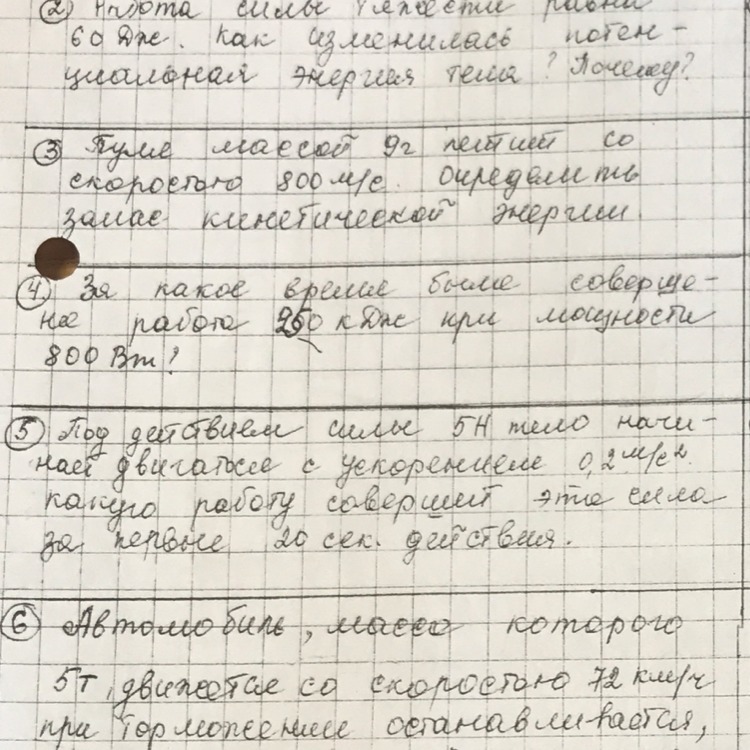 ② Работа силы тяжести равна
60 Дж. Как изменилась потен-
циальная энергия тела? Почему?
③ Пуля массой 9г летит со
скоростью 800 м/с. Определить
запас кинетической энергии.
④ За какое время была соверше-
на работа кДж при мощности
800 Вт?
⑤ Под действием силы 5Н тело начи-
нает двигаться с ускорением 0,2 м/с².
какую работу совершит эта сила
за первые 20 сек. действия.
⑥ Автомобиль, масса которого
5т, движется со скоростью 72 км/ч
при торможении останавливается,